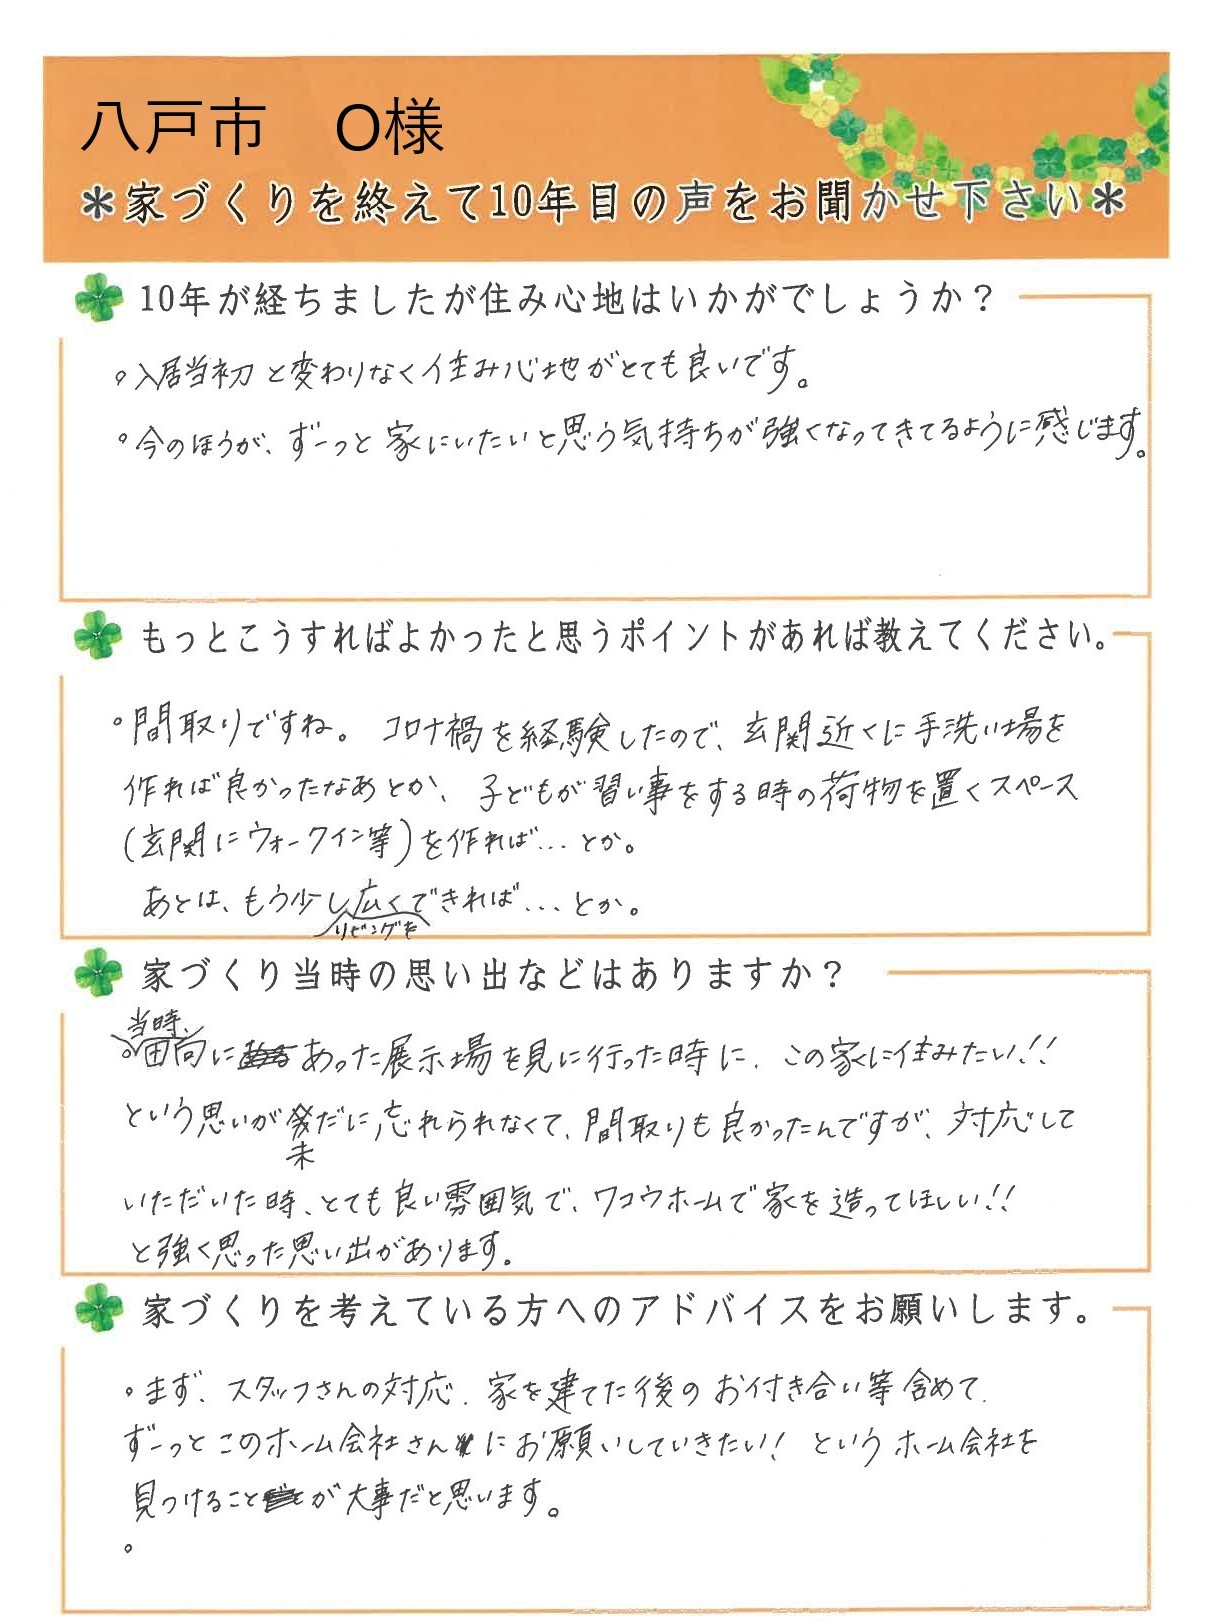 八戸市　O様
＊家づくりを終えて10年目の声をお聞かせ下さい＊
10年が経ちましたが住み心地はいかがでしょうか？
。入居当初と変わりなく住み心地がとても良いです。
。今のほうが、ずーっと家にいたいと思う気持ちが強くなってきてるように感じます。
もっとこうすればよかったと思うポイントがあれば教えてください。
。間取りですね。コロナ禍を経験したので、玄関近くに手洗い場を
作れば良かったなあとか、子どもが習い事をする時の荷物を置くスペース
(玄関にウォークイン等)を作れば...とか。
あとは、もう少し広くできれば...とか。
リビングを
家づくり当時の思い出などはありますか？
当時、
。田向にあった展示場を見に行った時に、この家に住みたい!!
という思いが だに忘れられなくて、間取りも良かったんですが、対応して
未
いただいた時、とても良い雰囲気で、ワコウホームで家を造ってほしい!!
と強く思った思い出があります。
家づくりを考えている方へのアドバイスをお願いします。
。まず、スタッフさんの対応、家を建てた後のお付き合い等含めて、
ずーっとこのホーム会社さんにお願いしていきたい! というホーム会社を
見つけることが大事だと思います。
。